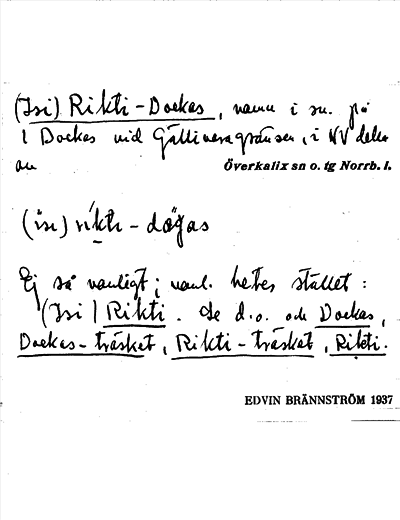 (Isi) Rikti-Dockas, namn i sn. på
1 Dockas vid Gällivaregränsen, i NV delen
av Överkalix sn o. tg Norrb. l.
( isi) rikti - dogas
Ej så vanligt; vanl. heter stället :
(Isi) Rikti. Se d.o. och Dockas,
Dockas-träsket, Rikti-träsket, Rikti.
EDVIN BRÄNNSTRÖM 1937